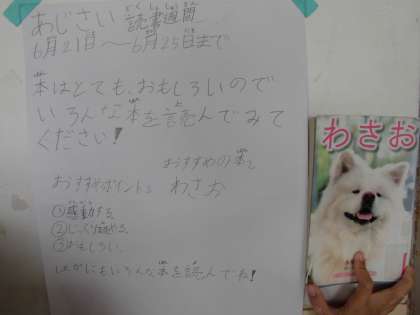 あじさい読書週間
どくしょしゅうかん
6月21日～6月25日まで
本はとても、おもしろいので
いろんな本を読んでみて
ください!
おすすめの本は
おすすめポイントは わさお
①感動する。
②じっくり読める。
③おもしろい。
ほかにもいろんな本を読んでね!
わさお